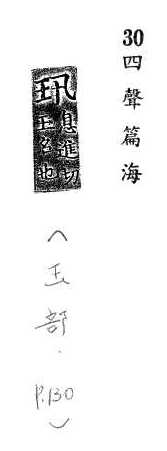 30 四聲篇海
息進切
玉名也
(玉部. P.130)